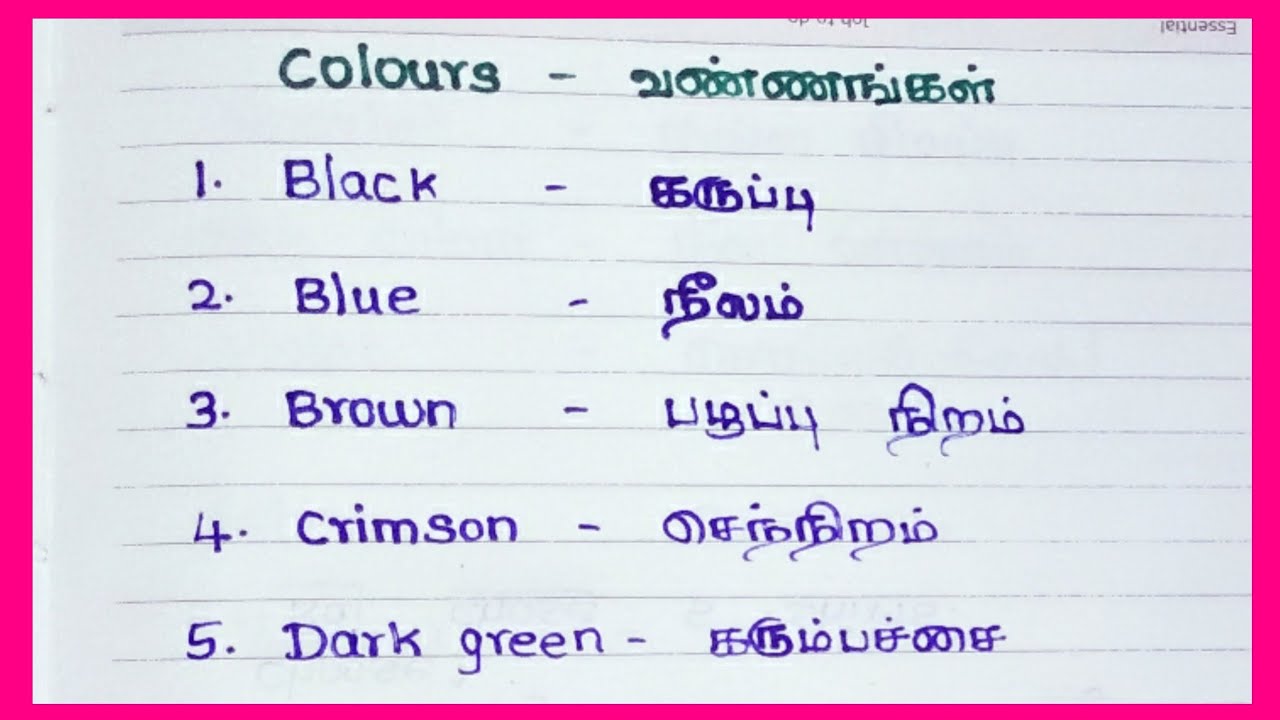 Essential
Job to do
Colours - வண்ணங்கள்
1. Black - கருப்பு
2. Blue - நீலம்
3. Brown - பழுப்பு நிறம்
4. Crimson - செந்நிறம்
5. Dark green - கரும்பச்சை